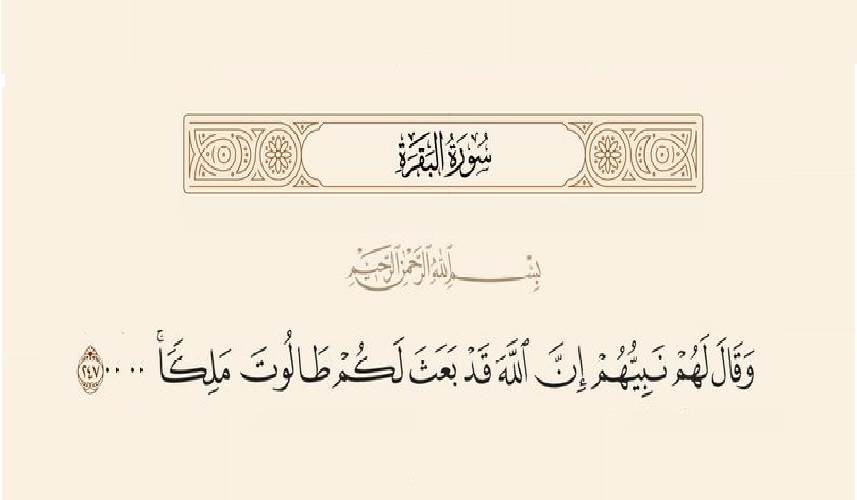 سُورَةُ البَقَرَةِ
بِسْمِ اللَّهِ الرَّحْمَٰنِ الرَّحِيمِ
وَقَالَ لَهُمْ نَبِيُّهُمْ إِنَّ ٱللَّهَ قَدْ بَعَثَ لَكُمْ طَالُوتَ مَلِكَاۚ .... ٢٤٧